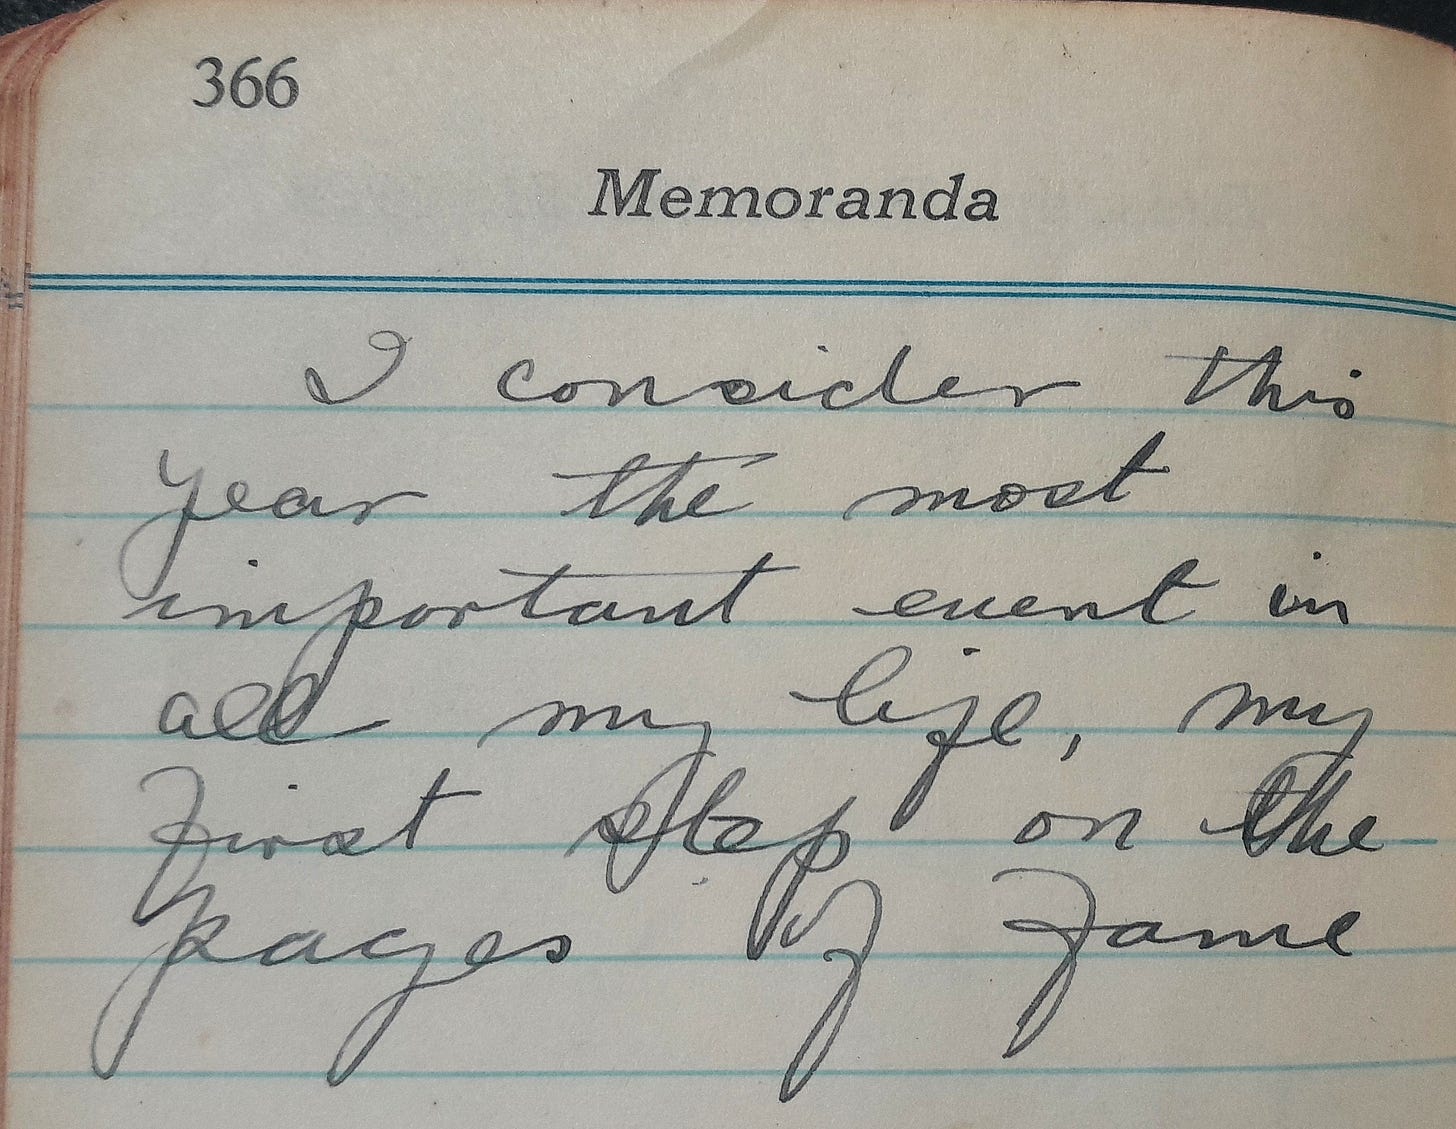 366
Memoranda
I consider this
year the most
important event in
all my life, my
first step on the
pages of Fame